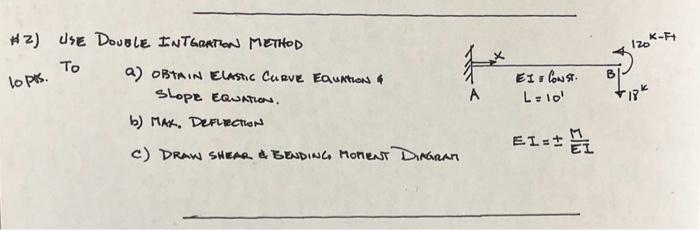 #2) USE DOUBLE INTGRATION METHOD
10 pts. To
a) OBTAIN ELASTIC CURVE EQUATION &
SLOPE EQUATION.
b) MAX. DEFLECTION
c) DRAW SHEAR & BENDING MOMENT DIAGRAM
120 K-Ft
x
EI = CONST. B
A L = 10' 18 k
EI = ± M/EI